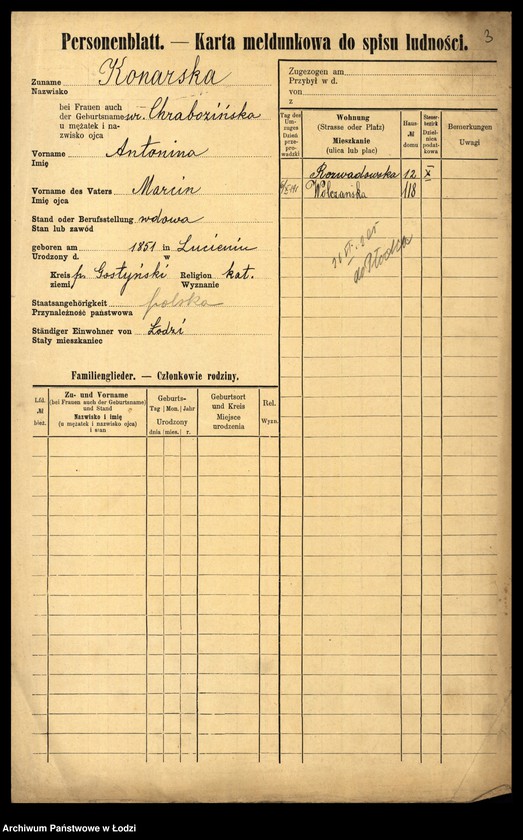 Personenblatt. — Karta meldunkowa do spisu ludności.
3
Zuname Konarska
Nazwisko
bei Frauen auch
der Geburtsname wr. Chrabozińska
u mężatek i na-
zwisko ojca
Vorname Antonina
Imię
Vorname des Vaters Marcin
Imię ojca
Stand oder Berufsstellung wdowa
Stan lub zawód
geboren am 1851 in Lucieniu
Urodzony d. w
Kreis p. Gostyński Religion kat.
ziemi Wyznanie
Staatsangehörigkeit polska
Przynależność państwowa
Ständiger Einwohner von Łodzi
Stały mieszkaniec
Familienglieder. — Członkowie rodziny.
Lfd.
№
bież.
Zu- und Vorname
(bei Frauen auch der Geburtsname)
und Stand
Nazwisko i imię
(u mężatek i nazwisko ojca)
i stan
Geburts-
Tag Mon. Jahr
Urodzony
dnia mies. r.
Geburtsort
und Kreis
Miejsce
urodzenia
Rel.
Wyzn.
Zugezogen am
Przybył w d.
von
z
Tag des
Um-
zuges
Dzień
prze-
pro-
wadzki
Wohnung
(Strasse oder Platz)
Mieszkanie
(ulica lub plac)
Haus-
№
domu
Steuer-
bezirk
Dziel-
nica
podat-
kowa
Bemerkungen
Uwagi
Rozwadowska 12 X
Wólczańska 118
do Płocka
Archiwum Państwowe w Łodzi